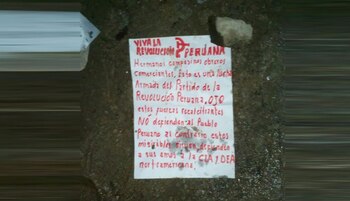 VIVA LA
REVOLUCIÓN PERUANA
Hermanos campesinos obreros
comerciantes, Esto es una lucha
Armada del Partido de la
Revolución Peruana, OJO
estos puercos recalcitrantes
NO defienden al Pueblo
Peruano al contrario estos
miserables siguen defendiendo
a sus amos a la CIA y DEA
norteamericana.